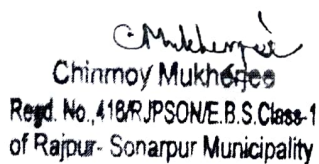 CMukherjee
Chinmoy Mukherjee
Regd. No.,416/RJPSON/E.B.S.Class-1
of Rajpur- Sonarpur Municipality